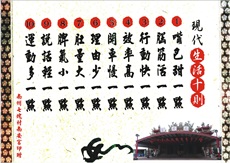 現代生活十則
1 嘴巴甜一點
2 腦筋活一點
3 行動快一點
4 效率高一點
5 開車慢一點
6 理由少一點
7 肚量大一點
8 脾氣小一點
9 說話輕一點
10 運動多一點